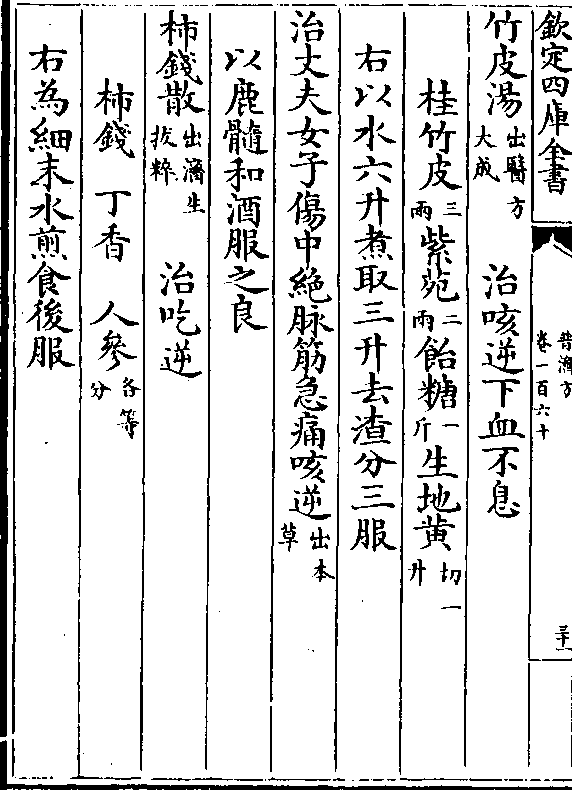 欽定四庫全書
普濟方
卷一百六十
三十一
竹皮湯出醫方大成 治咳逆下血不息
桂竹皮三兩紫苑二兩飴糖一斤生地黄切一升
右以水六升煮取三升去渣分三服
治丈夫女子傷中絶脉筋急痛咳逆出本草
以鹿髓和酒服之良
柿錢散出濟生拔粹 治吃逆
柿錢 丁香 人參各等分
右為細末水煎食後服